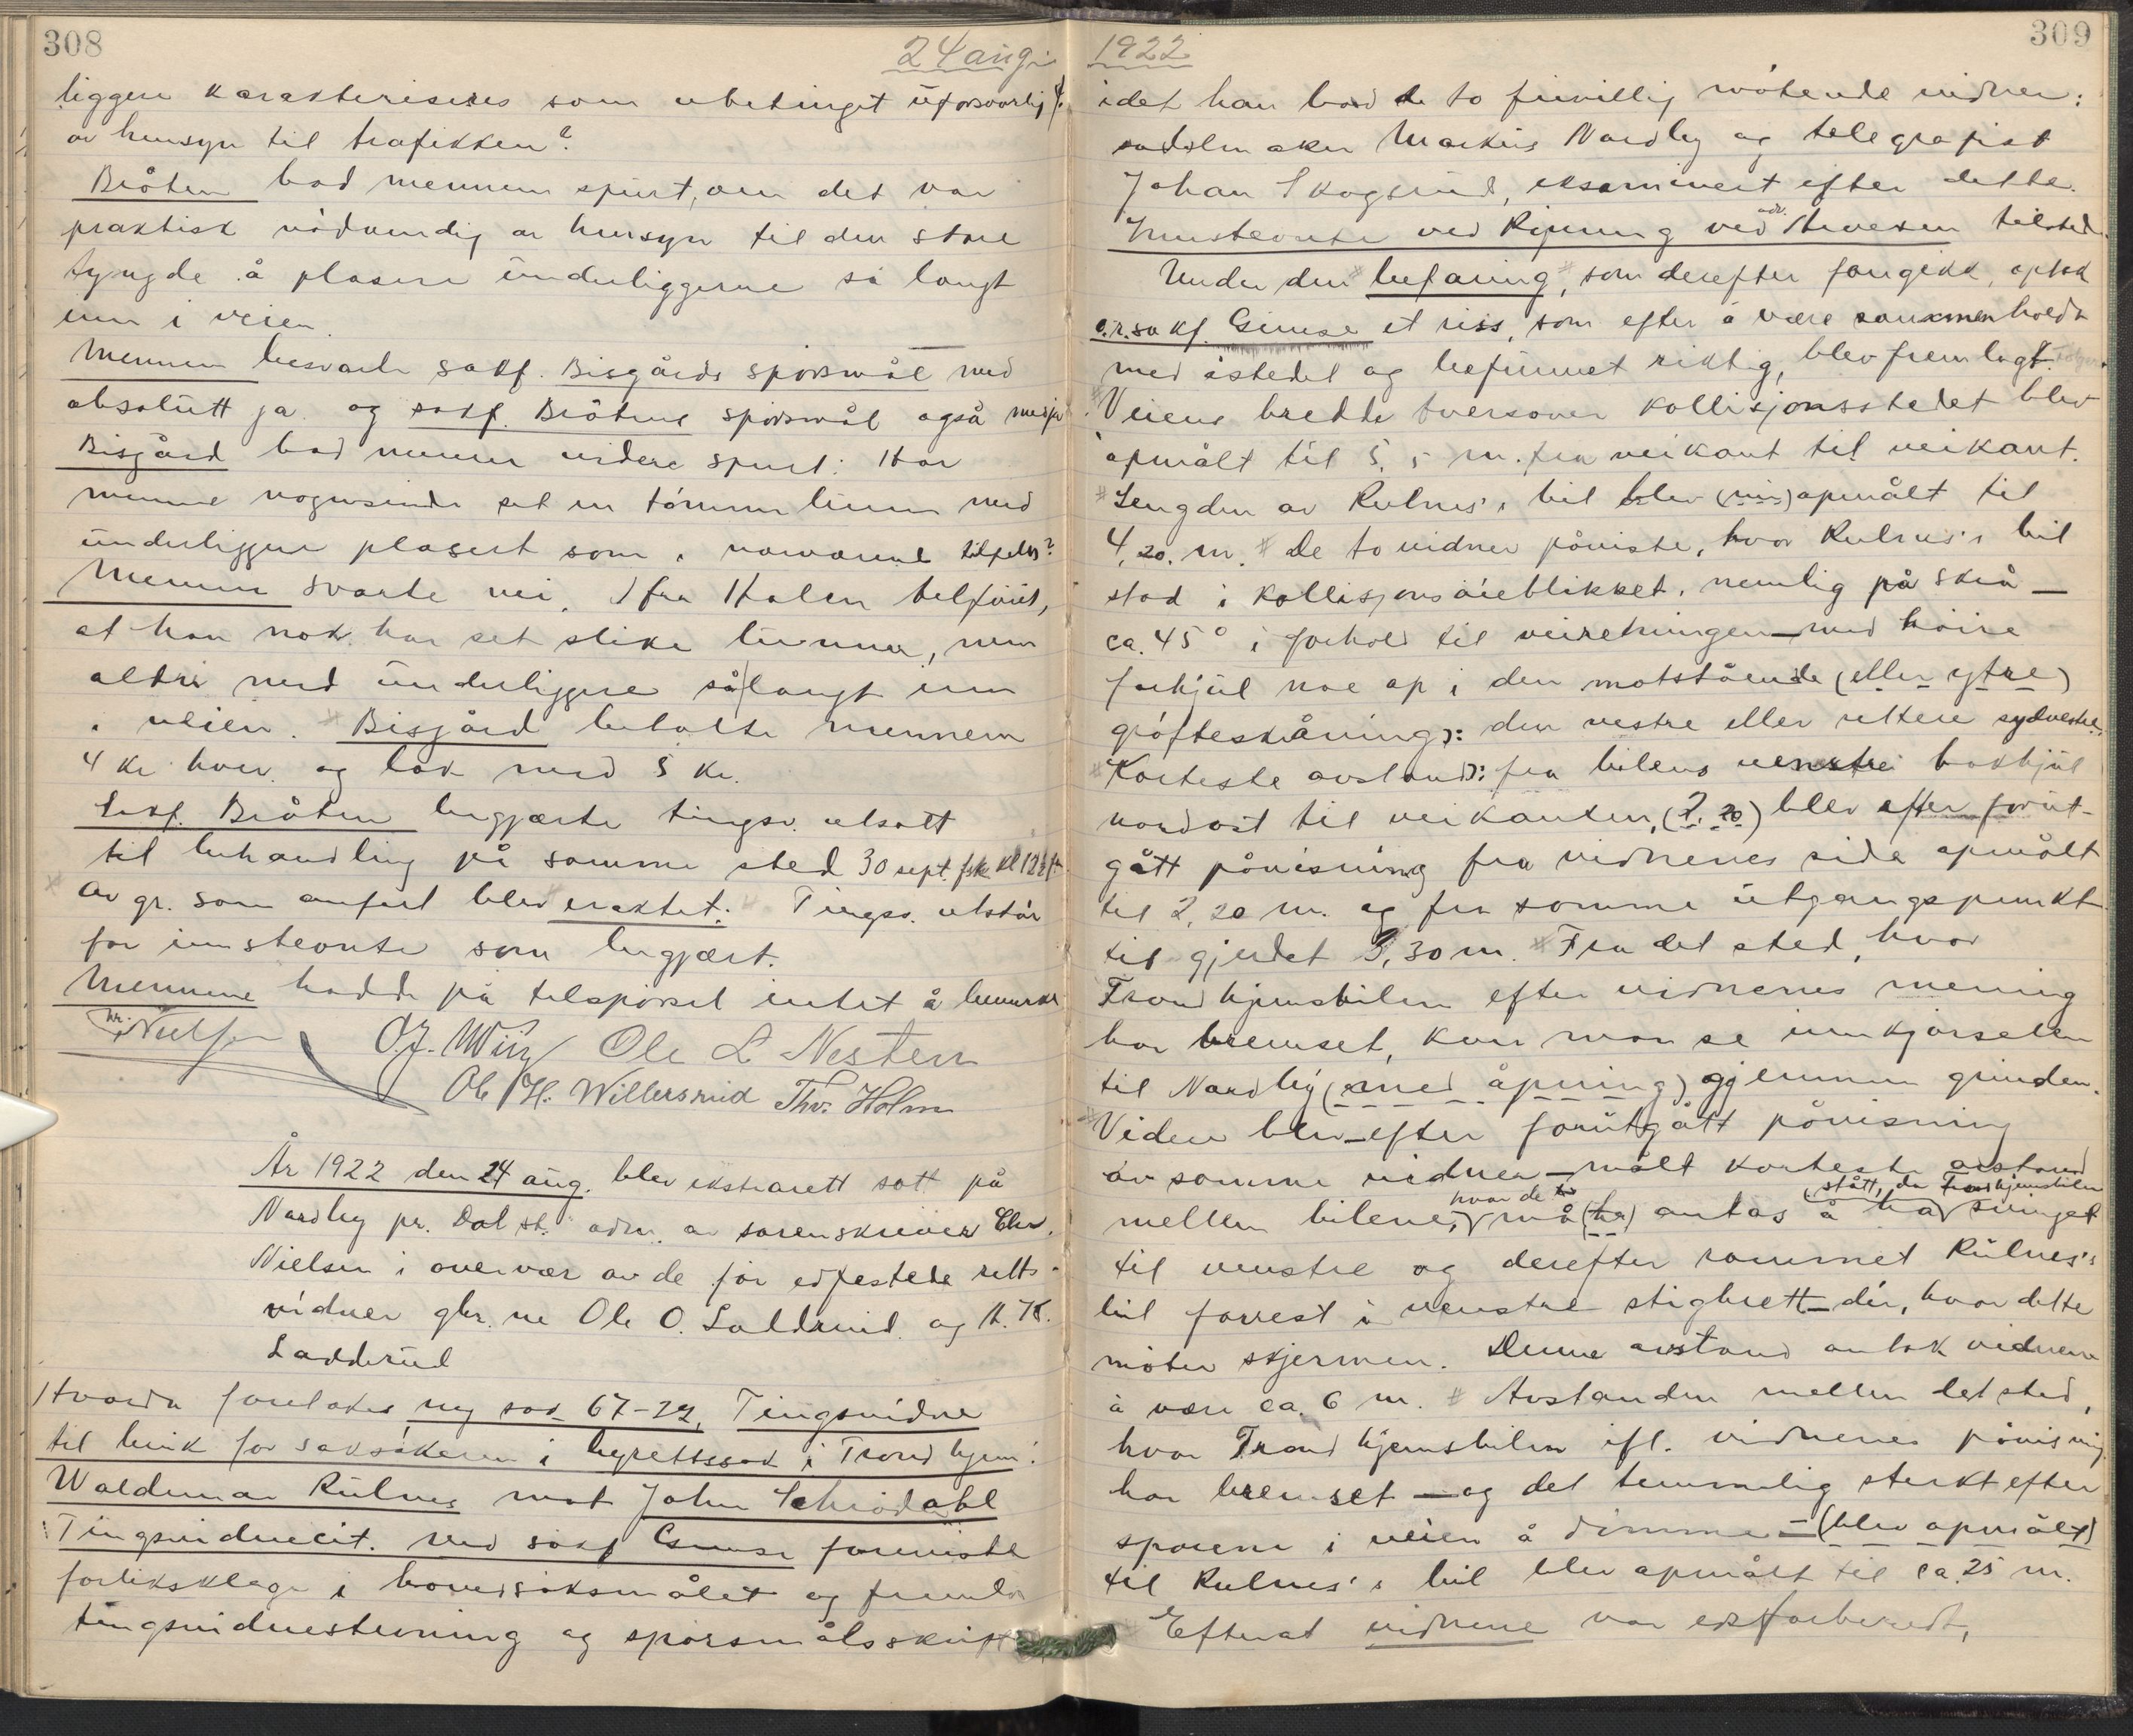 308
24 aug.
liggere karakteriseres som ubetinget uforsvarlig
av hensyn til trafikken?
Bråten bad mennene spurt, om det var
praktisk nödvendig av hensyn til den store
tyngde å plasere underliggerne så langt
inn i veien.
Mennene besvarte sakf. Bisgårds spörsmål med
absolutt ja og sakf. Bråtens spörsmål også med ja
Bisgård bad mennene videre spurt: Har
mennene nogensinde set en tömmerlunne med
underliggere plasert som i nærværende tilfelde?
Mennene svarte nei, Holm tilföiet,
at han nok har set slike lunner, men
aldri med underliggere så langt inn
i veien. Bisgård betalte mennene
4 kr hver og lov med 5 kr.
Sakf. Bråten begjærte tingsv. utsatt
til behandling på samme sted 30 sept. fstk. kl 12½
Av gr. som anfört blev eraktet: Tingsv. utstår
for innstevnte som begjært.
Mennene hadde på tilspörsel intet å bemerke
Chr. Nielsen O.J. Wiig Ole L Nesten
Ole H. Willersrud Thv. Holm
År 1922 den 24 aug. blev ekstrarett satt på
Nordby pr. Dal st. adm. av sorenskriver Chr.
Nielsen i overvær av de för edfestede retts-
vidner gbr.ne Ole O. Ladderud og K. K.
Ladderud
Hvorda foretokes ny sak 67-22, Tingsvidne
til bruk for saksökeren i byrettssak i Trondhjem:
Waldemar Rulnes mot John Schrödahl
Tingsvidnecit. ved sakf Gimse foreviste
forliksklage i hovedsöksmålet og fremla
tingsvidnestevning og spörsmålsskrift
1922
309
idet han bad de to frivillig mötende vidner:
sadelmaker Markus Nordby og telegrafist
Johan Skogsrud, eksaminert efter dette.
Innstevnte ved Rynning ved adv. Arvesen tilstede.
Under den befaring, som derefter foregikk, optok
o.r.sakf. Gimse et riss, som efter å være sammenholdt
med åstedet og befunnet riktig, blev fremlagt.
Veiens bredde tversover kollisjonsstedet blev
opmålt til 5,5 m. fra veikant til veikant.
Lengden av Rulnes's bil blev opmålt til
4,20. m. De to vidner påviste, hvor Rulnes's bil
stod i kollisjonsöieblikket, nemlig på skrå –
ca. 45° i forhold til veiretningen – med höire
forhjul noe op i den motstående (eller ytre)
gröfteskråning): den vestre eller rettere sydvestre.
Korteste avstand): fra bilens venstre bakhjul
nordöst til veikanten, (2.20) blev efter forut-
gått påvisning fra vidnenes side opmålt
til 2,20 m. og fra samme utgangspunkt
til gjerdet 3,30 m. Fra det sted, hvor
Trondhjemsbilen efter vidnenes mening
har bremset, kan man se innkjörselen
til Nordby (med åpning) gjennem grinden.
Videre blev – efter forutgått påvisning
av samme vidner – målt korteste avstand
mellem bilene, hvor de må (ha) antas å ha stått, da Trondhjemsbilen svinget
til venstre og derefter rammet Rulnes's
bil forrest i venstre stigbrett – der, hvor dette
möter skjermen. Denne avstand antok vidnene
å være ca. 6 m. Avstanden mellem det sted,
hvor Trondhjemsbilen ifl. vidnenes påvisning
har bremset – og det temmelig sterkt efter
sporene i veien å dömme – (blev opmålt)
til Rulnes's bil blev opmålt til ca. 25 m.
Efterat vidnene var edsforberedt,